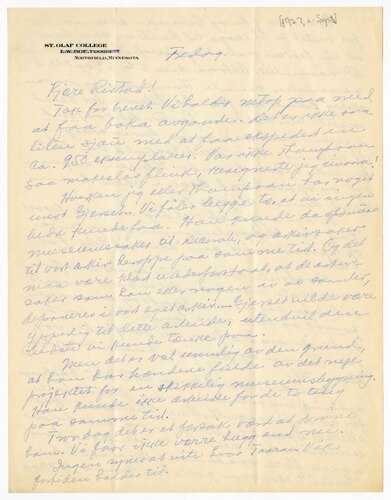 [1927, o. Sept]
ST. OLAF COLLEGE
L.W. BOE, PRESIDENT
NORTHFIELD, MINNESOTA
Fredag.
Kjere Ristad!
Tak for brevet. Vi holder netop paa med
at faa boka avgaarde. Det er ikke saa
liten sjau med at faa ekspedert en
ca. 950 eksemplarer. Var ikke Thompson
saa makelös flink, resignerte jeg
Hverken jeg eller Thompson har noget
imot Gjerset. Vi föler begge to, at vi ingen
bedre kunde faa. Han kunde da
museumssaker til Decorah, og arkivsaker
til vort arkiv heroppe paa samme tid. Og det
maa være klart underforstaat, at de arkiv
saker som han eller nogen av os samler,
deponeres i vort eget arkiv. Gjerset vilde være
til dette arbeide, utentvil den
bedste vi kunde tenke paa.
Men det er vel umulig av den grund,
at han har hendene fulde av det nye
projektet for en skikkelig museumsbygning.
Han kunde ikke arbeide for de to ting
paa samme tid.
Tro dog det er et forsök værd at prøve
ham. Vi faar ikke værre end nei.
Ingen synes at vite hvor Taaran Vik
fortiden holder til.